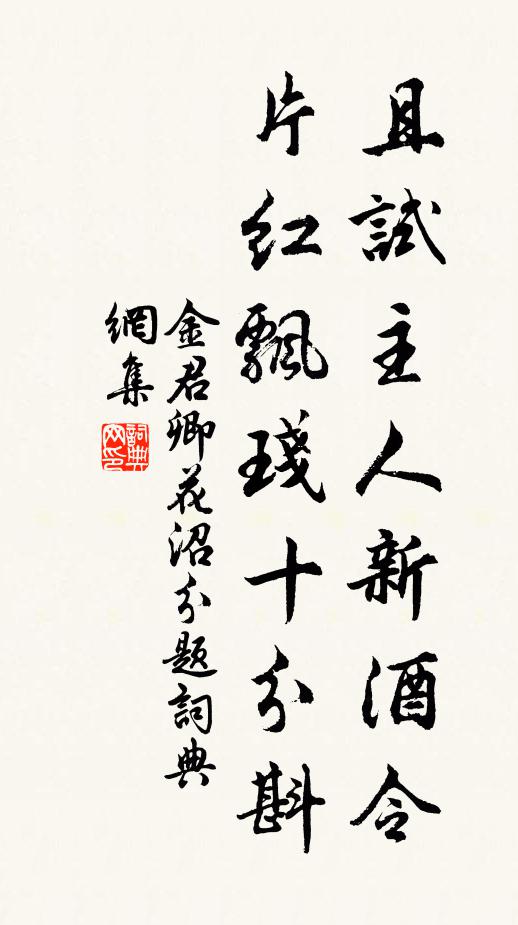 且試主人新酒令
片紅飄琖十分斟
金君卿花沼分題詞典
網集
詞典网印